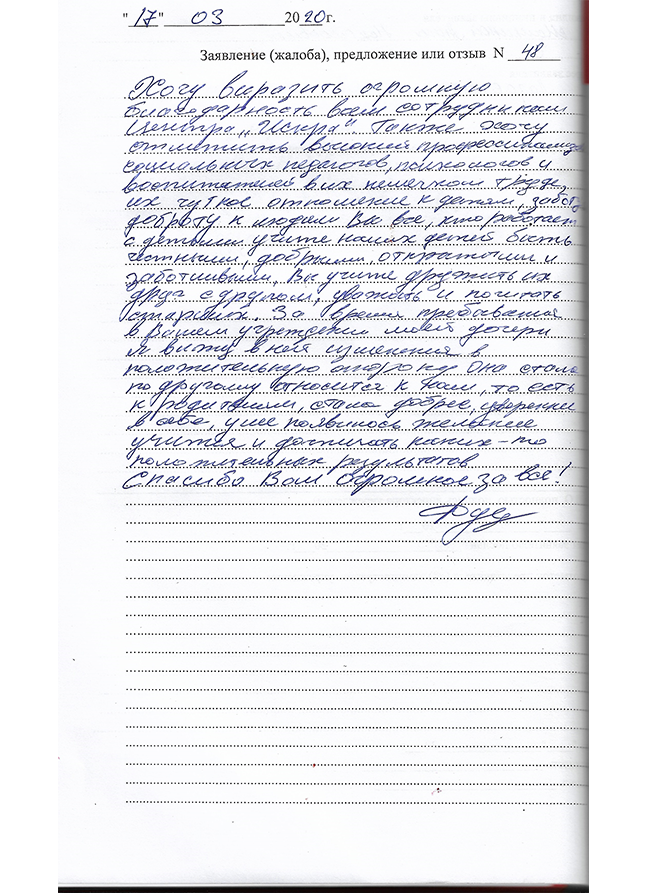 "17" 03 2020г.
Заявление (жалоба), предложение или отзыв N 48
Хочу выразить огромную
благодарность всем сотрудникам
Центра „Искра". Также хочу
отметить высокий профессионализм
социальных педагогов, психологов и
воспитателей в их нелегком труде,
их чуткое отношение к детям, заботу
доброту к людям Вы все, кто работает
с детьми учите наших детей быть
честными, добрыми, открытыми и
заботливыми, Вы учите дружить их
друг с другом, уважать и почитать
старших. За время пребывания
в Вашем учреждении моей дочери
я вижу в ней изменения в
положительную сторону Она стала
по другому относится к нам, то есть
к родителям, стала добрее, уверенней
в себе, у нее появилось желание
учится и достигать каких-то
положительных результатов
Спасибо Вам огромное за все!